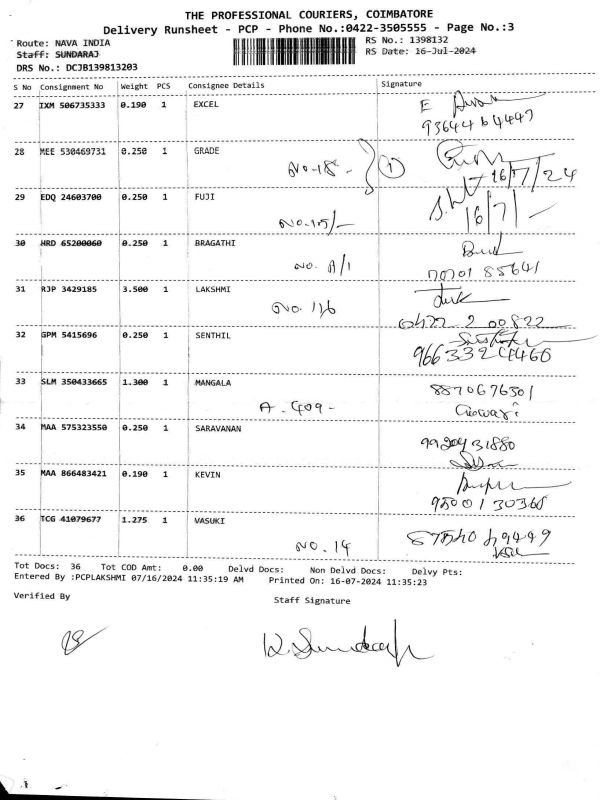 THE PROFESSIONAL COURIERS, COIMBATORE
Delivery Runsheet - PCP - Phone No.:0422-3505555 - Page No.:3
Route: NAVA INDIA
RS No.: 1398132
Staff: SUNDARAJ
RS Date: 16-Jul-2024
DRS No.: DCJB139813203
S No Consignment No Weight PCS Consignee Details Signature
27 IXM 506735333 0.190 1 EXCEL
28 MEE 530469731 0.250 1 GRADE
No-18 - 1
16/7/24
29 EDQ 24603700 0.250 1 FUJI
16/7/-
30 HRD 65200060 0.250 1 BRAGATHI
No. A/1
31 RJP 3429185 3.500 1 LAKSHMI
No. 116
0422 2 00822
32 GPM 5415696 0.250 1 SENTHIL
33 SLM 350433665 1.300 1 MANGALA
A - 409 -
8870676301
34 MAA 575323550 0.250 1 SARAVANAN
9920431880
35 MAA 866483421 0.190 1 KEVIN
36 TCG 41079677 1.275 1 VASUKI
No. 14
Tot Docs: 36 Tot COD Amt: 0.00 Delvd Docs: Non Delvd Docs: Delvy Pts:
Entered By :PCPLAKSHMI 07/16/2024 11:35:19 AM Printed On: 16-07-2024 11:35:23
Verified By
Staff Signature